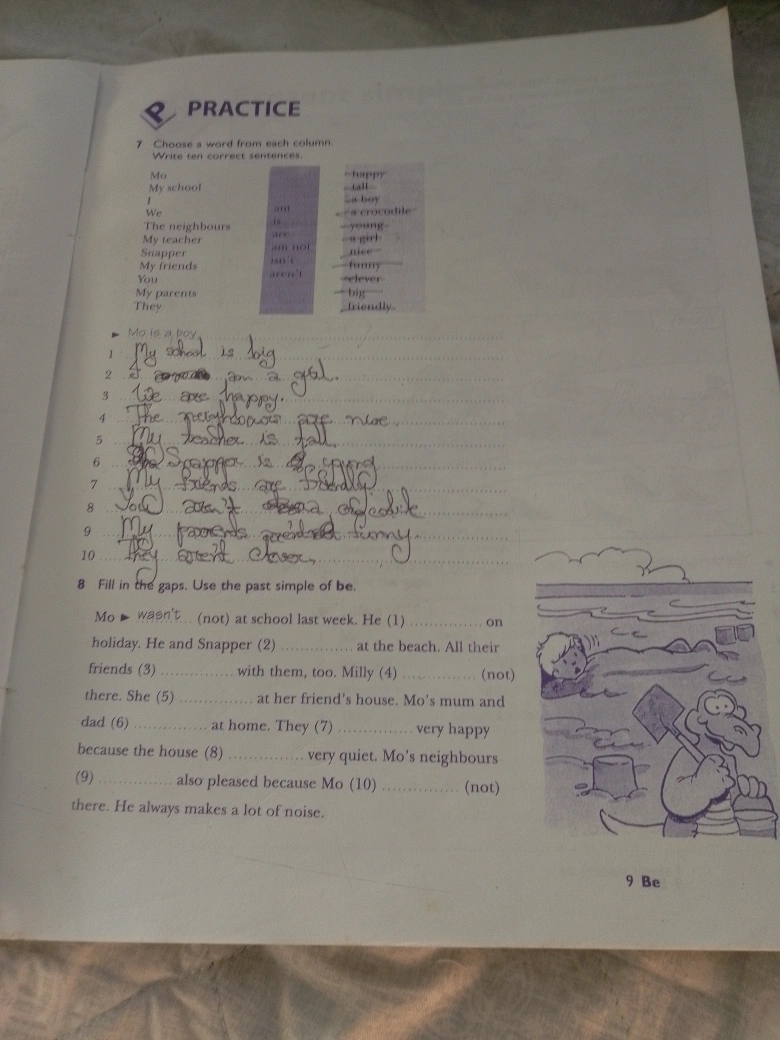 PRACTICE
7 Choose a word from each column.
Write ten correct sentences.
Mo happy
My school tall
I a boy
We am a crocodile
The neighbours is young
My teacher are a girl
Snapper am not nice
My friends isn't funny
You aren't clever
My parents big
They friendly
► Mo is a boy
1 My school is big
2 I am a girl.
3 We are happy.
4 The neighbours are nice.
5 My teacher is tall.
6 Snapper is young
7 My friends are friendly
8 You aren't a
9 My parents aren't funny.
10 They aren't clever.
8 Fill in the gaps. Use the past simple of be.
Mo ► wasn't (not) at school last week. He (1) .............. on
holiday. He and Snapper (2) .............. at the beach. All their
friends (3) .............. with them, too. Milly (4) .............. (not)
there. She (5) .............. at her friend's house. Mo's mum and
dad (6) .............. at home. They (7) .............. very happy
because the house (8) .............. very quiet. Mo's neighbours
(9) .............. also pleased because Mo (10) .............. (not)
there. He always makes a lot of noise.
9 Be